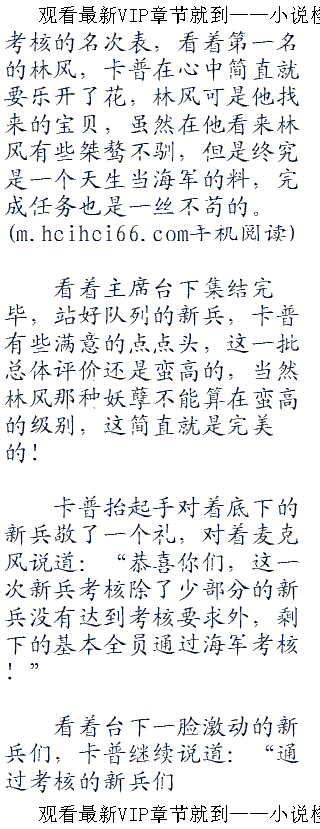 观看最新VIP章节就到——小说检
考核的名次表，看着第一名
的林风，卡普在心中简直就
要乐开了花，林风可是他找
来的宝贝，虽然在他看来林
风有些桀骜不驯，但是终究
是一个天生当海军的料，完
成任务也是一丝不苟的。
(m.hcihci66.com手机阅读)
看着主席台下集结完
毕，站好队列的新兵，卡普
有些满意的点点头，这一批
总体评价还是蛮高的，当然
林风那种妖孽不能算在蛮高
的级别，这简直就是完美
的！
卡普抬起手对着底下的
新兵敬了一个礼，对着麦克
风说道：“恭喜你们，这一
次新兵考核除了少部分的新
兵没有达到考核要求外，剩
下的基本全员通过海军考核
！”
看着台下一脸激动的新
兵们，卡普继续说道：“通
过考核的新兵们
观看最新VIP章节就到——小说检